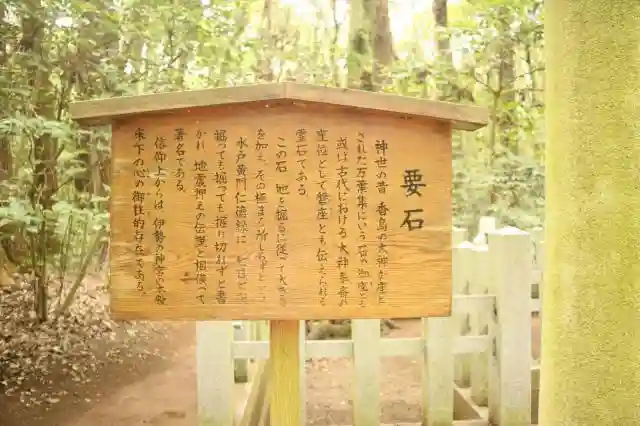 要石
神世の昔 香島の大神が座と
された万葉集にいう石の御座とも
或は古代における大神奉斎の
座位として磐座とも伝えられる
霊石である。
この石 地を掘るに従って大きさ
を加え、その極まる所しらずという
水戸黄門仁徳録に 七日七夜
掘っても掘っても掘り切れずと書
かれ 地震押えの伝説と相俟って
著名である。
信仰上からは 伊勢の神宮の本殿
床下の心の御柱的存在である。